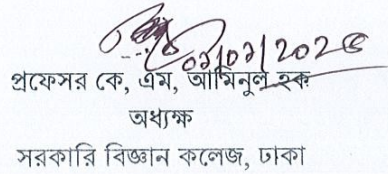 প্রফেসর কে, এম, আমিনুল হক
অধ্যক্ষ
সরকারি বিজ্ঞান কলেজ, ঢাকা